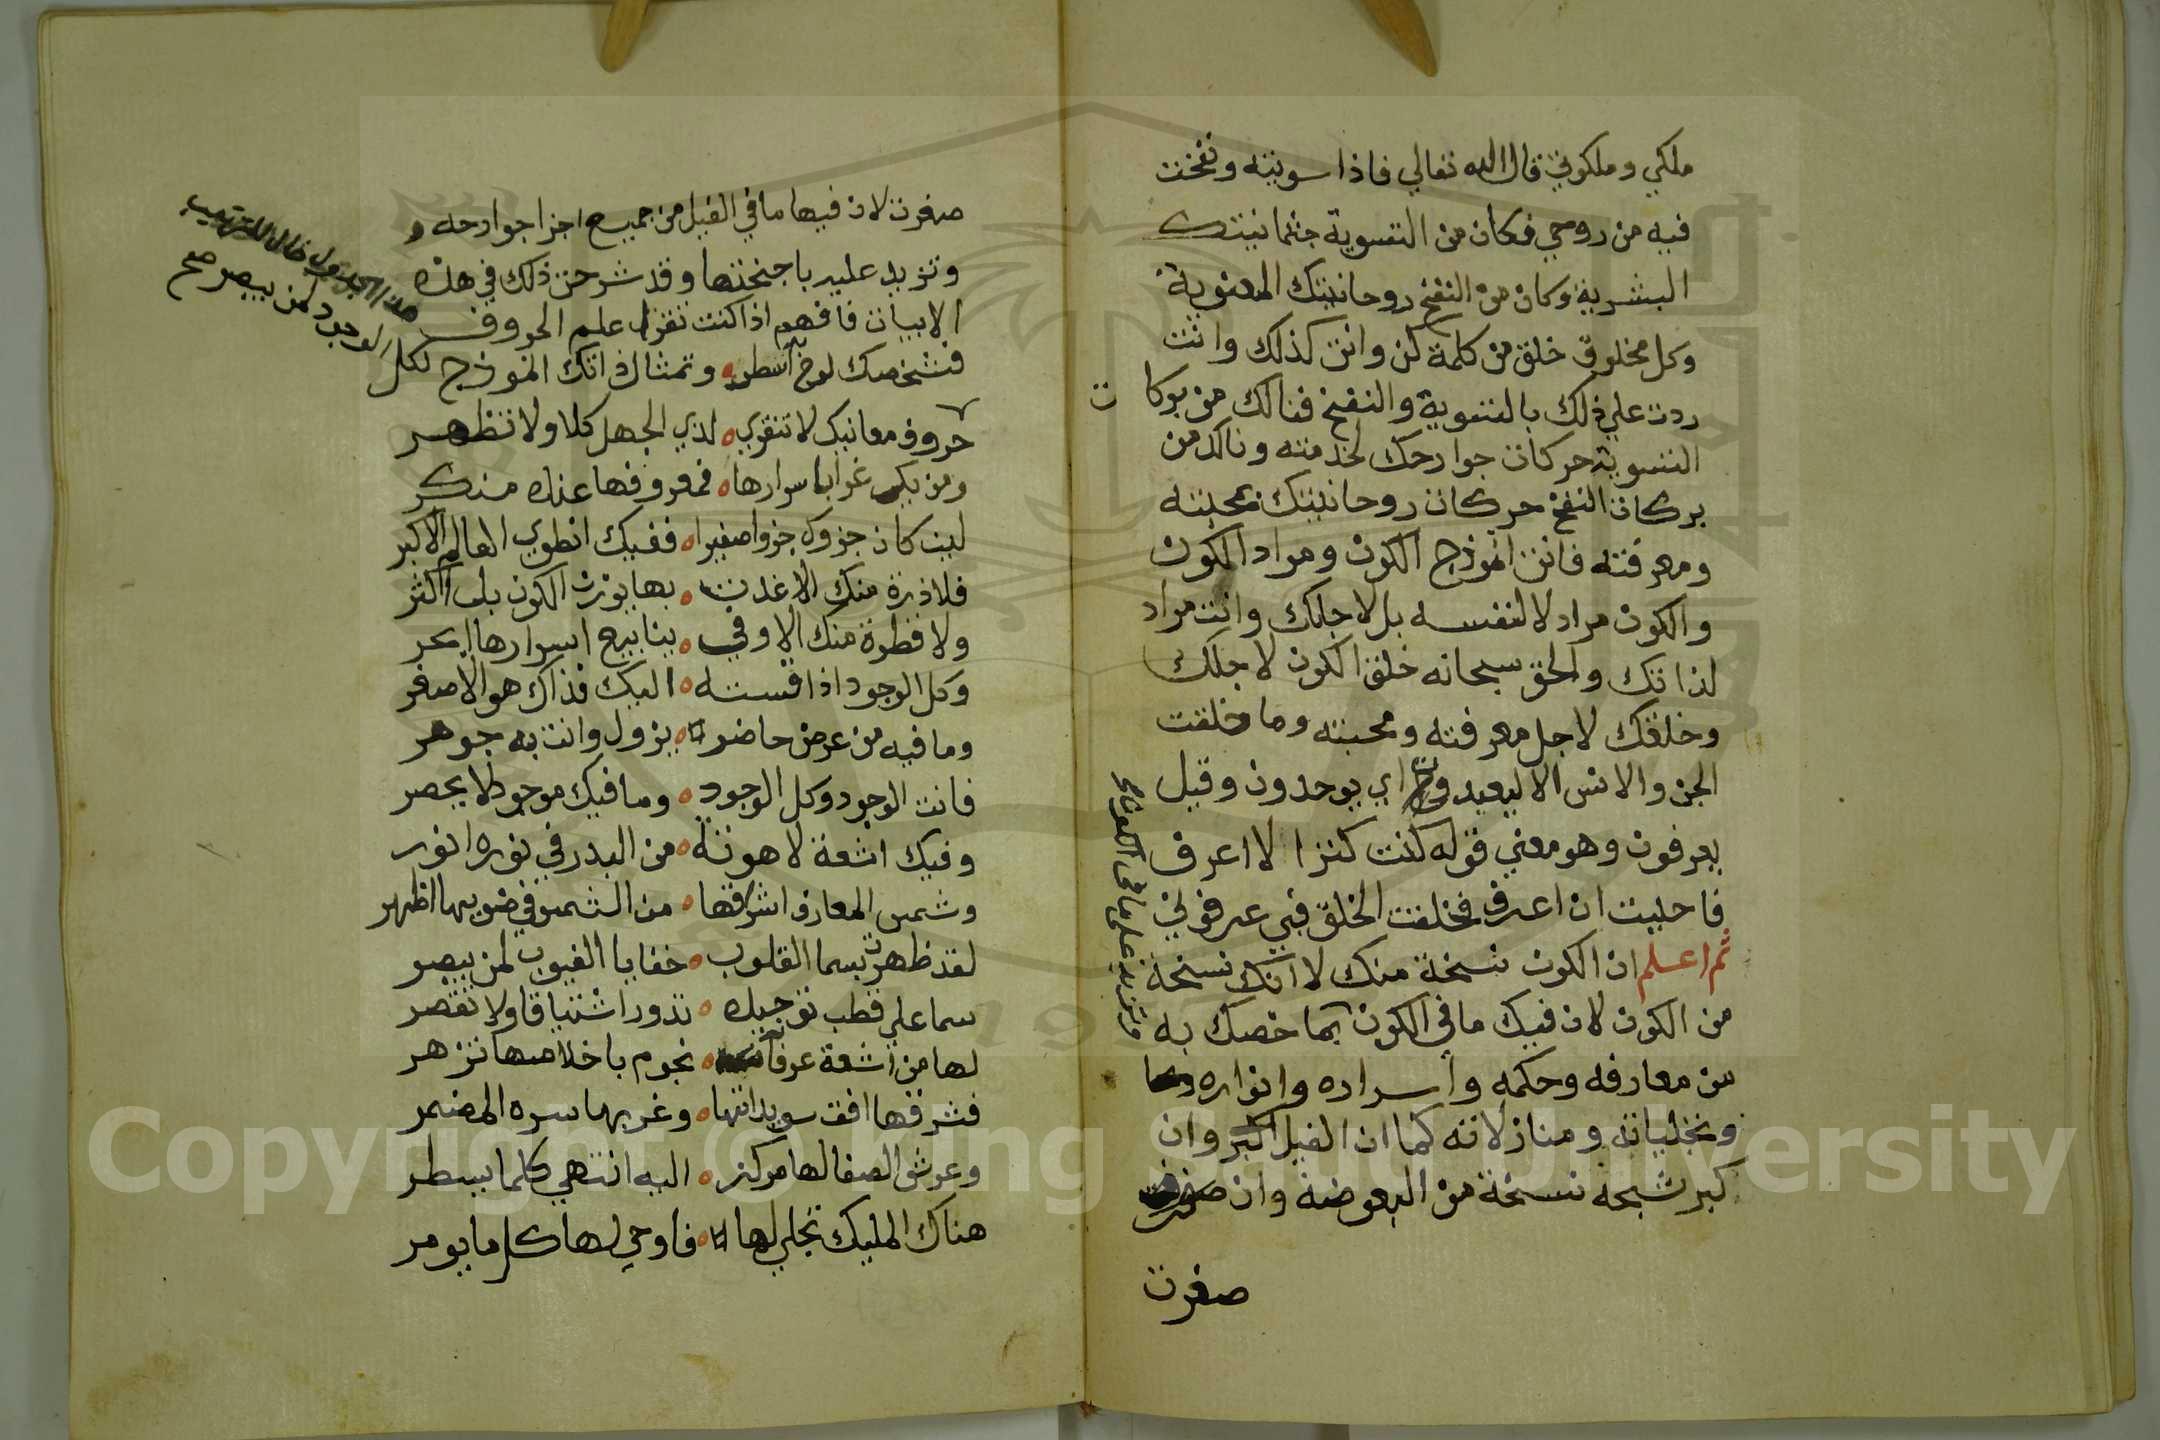 ملكي وملكوتي قال الله تعالي فاذا سويته ونفخت
فيه من روحي فكان من التسوية جثمانيتك
البشرية وكان من النفخ روحانيتك المعنوية
وكل مخلوق خلق من كلمة كن وانت كذلك وانت
زدت علي ذلك بالتسوية والنفخ فنالك من بركات
التسوية حركات جوارحك لخدمته ونالك من
بركات النفخ حركات روحانيتك بمحبته
ومعرفته فانت انموذج الكون ومراد الكون
والكون مراد لا لنفسه بل لاجلك وانت مراد
لذاتك والحق سبحانه خلق الكون لاجلك
وخلقك لاجل معرفته ومحبته وما خلقت
الجن والانس الا ليعبدون اي يوحدون وقيل
يعرفون وهو معني قوله كنت كنزا لا اعرف
فاحببت ان اعرف فخلقت الخلق فبي عرفوني
ثم اعلم ان الكون نسخة منك لا انك نسخة
من الكون لان فيك ما في الكون بما خصك به
وتزيد علي ما في الكون
من معارفه وحكمه واسراره وانواره
وتجلياته ومنازلاته كما ان الفيل اكبر وان
كبر شبحه نسخة من البعوضة وان
صغرت
صغرت لان فيها ما في الفيل من جميع اجزا جوارحه و
وتزيد عليه باجنحتها وقد شرحت ذلك في هذه
الابيات فافهم اذا كنت تقرا علم الحروف
فشخصك لوح به اسطر وتمثال ذاتك انموذج لكل
الوجود لمن يبصر صح
حروف معانيك لا تنقري لذي الجهل كلا ولا تظهر
ومن يك غرا باسرارها فمعروفها عنده منكر
لين كان جزوك جزوا صغيرا ففيك انطوي العالم الاكبر
فلا ذرة منك الا غدت بها يوزن الكون بل اكثر
ولا قطرة منك الا وفي ينابيع اسرارها ابحر
وكل الوجود اذا قسته اليك فذاك هو الاصغر
وما فيه من عرض حاضر يزول وانت به جوهر
فانت الوجود وكل الوجود وما فيك موجود لا يحصر
وفيك اشعة لاهوته من البدر في نوره انور
وشمس المعارف اشراقها من الشمس في ضويها اظهر
لقد ظهرت بسما القلوب خفايا الغيوب لمن يبصر
سما علي قطب توحيده تدور اشتياقا ولا تقصر
لها من اشعة عرفانه نجوم باخلاصها تزهر
فشرقها افق سويدائها وغربها سره المضمر
وعرش الصفا لها مركز اليه انتهي كلما يسطر
هناك المليك تجلي لها فاوحي لها كل ما يومر
Copyright © King Saud University